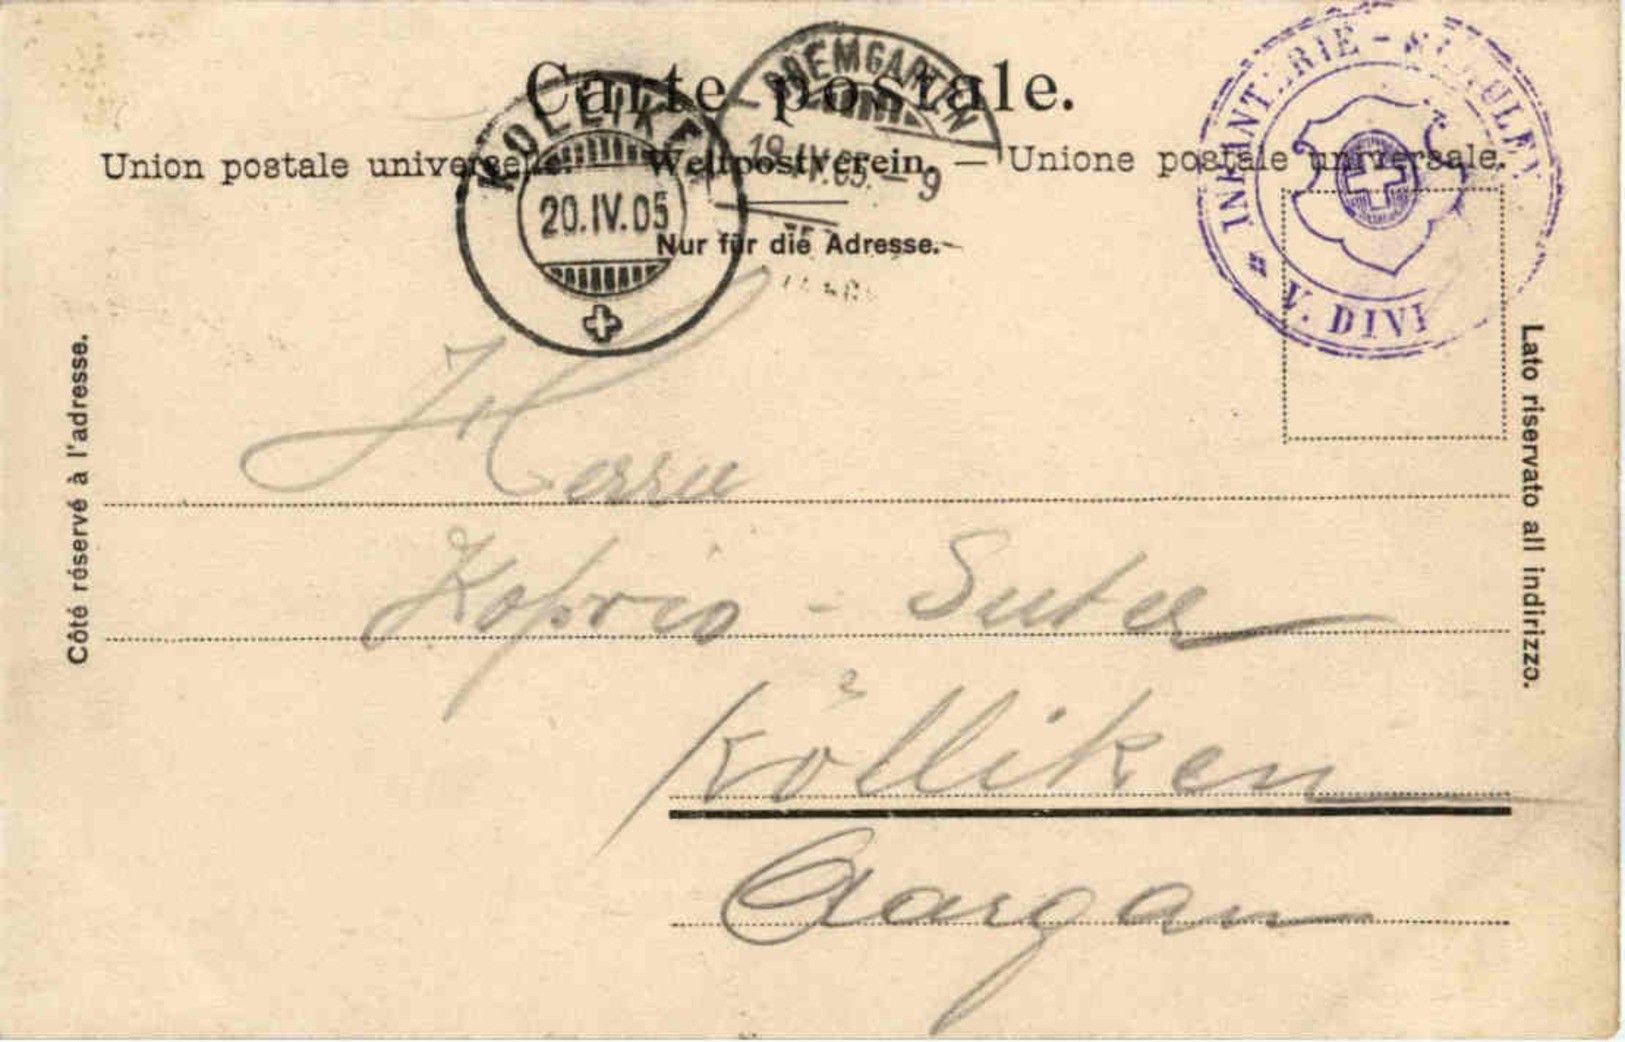 Carte postale.
Union postale universelle. — Weltpostverein. — Unione postale universale.
Nur für die Adresse.
BREMGARTEN
19.IV.05.-9
KÖLLIKEN
20.IV.05
INFANTERIE-SCHULEN
V. DIVI
Côté réservé à l'adresse.
Lato riservato all indirizzo.
Herrn
Koprio - Suter
Kölliken
Aargau